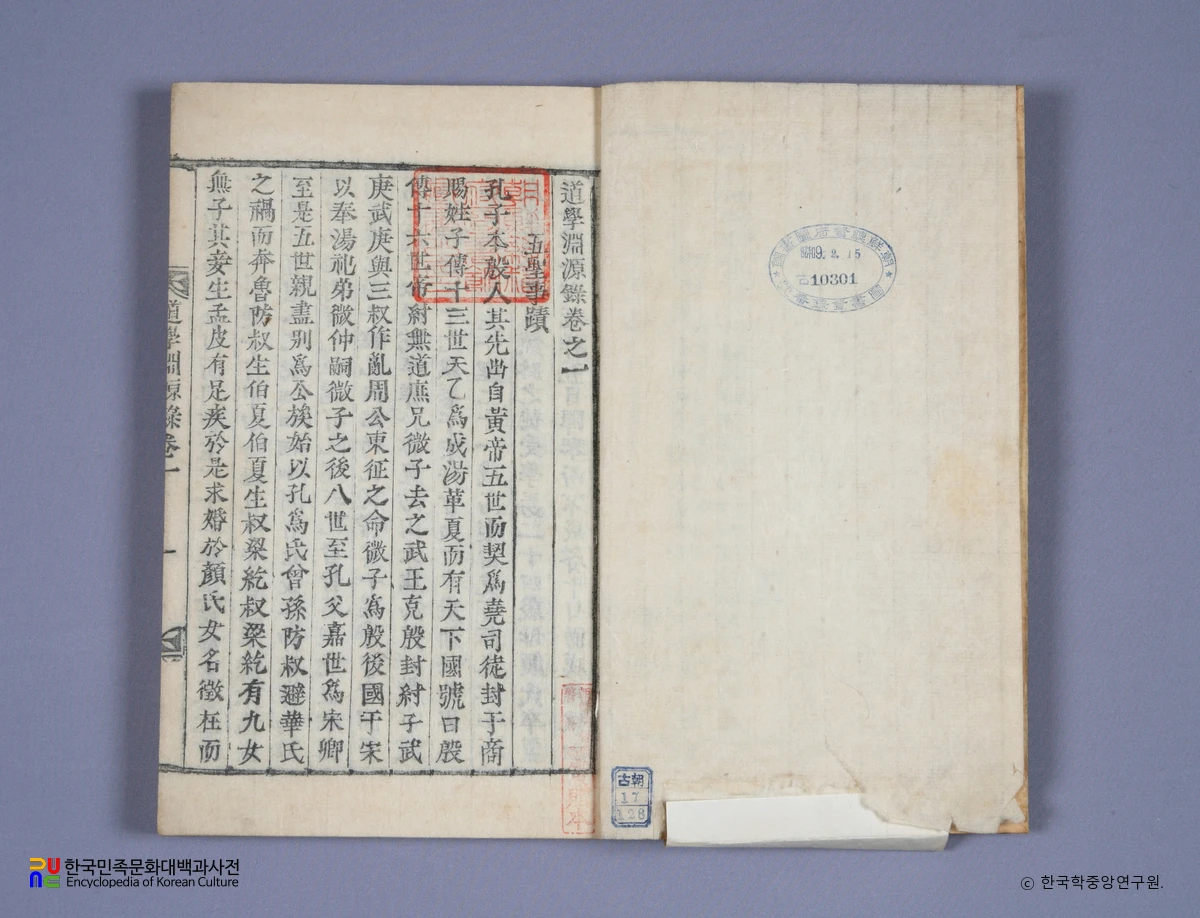 道學淵源錄卷之一
五聖事蹟
孔子本殷人其先出自黃帝五世而契爲堯司徒封于商
賜姓子傳十三世天乙爲成湯革夏而有天下國號曰殷
傳十六世帝紂無道庶兄微子去之武王克殷封紂子武
庚武庚與三叔作亂周公東征之命微子爲殷後國于宋
以奉湯祀弟微仲嗣微子之後八世至孔父嘉世爲宋卿
至是五世親盡别爲公族始以孔爲氏曾孫防叔避華氏
之禍而奔魯防叔生伯夏伯夏生叔梁紇叔梁紇有九女
無子其妾生孟皮有足疾於是求婚於顏氏女名徵在而
道學淵源錄卷一
一
9.2.15
古10301
古朝
17
128
한국민족문화대백과사전
Encyclopedia of Korean Culture
© 한국학중앙연구원.